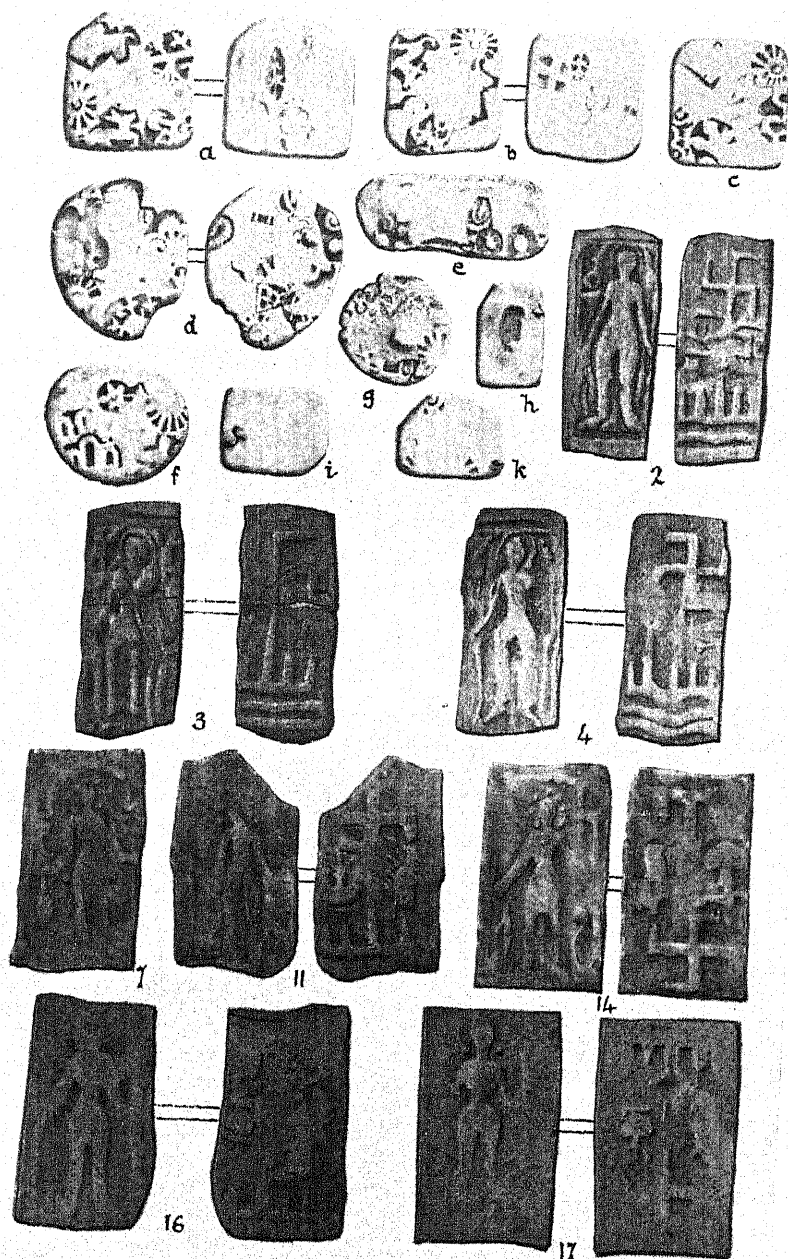 a
b
c
d
e
g
h
f
i
k
2
3
4
7
11
14
16
17